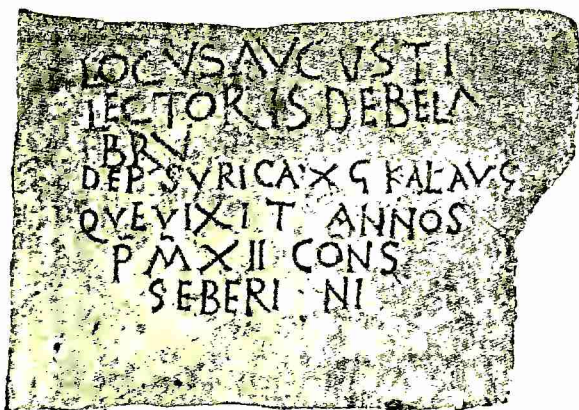 LOCVS AVCVSTI
LECTORIS DE BELA
BRV
DEP SVRICA X G KAL AVG
QVE VIXIT ANNOS
P M XII CONS
SEBERI NI